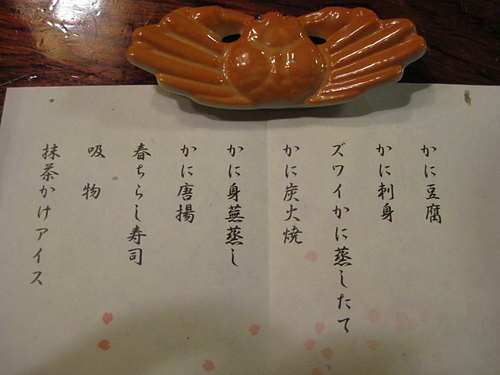 かに豆腐
かに刺身
ズワイかに蒸したて
かに炭火焼
かに身蕪蒸し
かに唐揚
春ちらし寿司
吸物
抹茶かけアイス